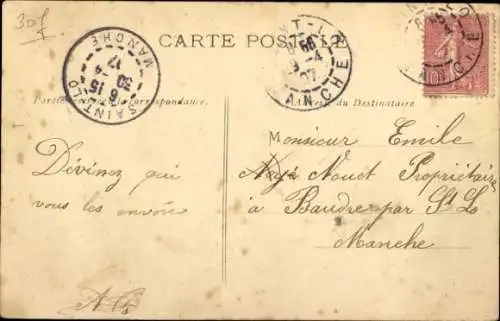 30f
CARTE POSTALE
SAINT-LÔ
6 15
30
4
17
MANCHE
9-4
07
MANCHE
Partie réservée à la correspondance.
Adresse du Destinataire
Monsieur Emile
Nouet Propriétaire
à Baudre par St Lo
Manche
Dévinez qui
vous les envoie